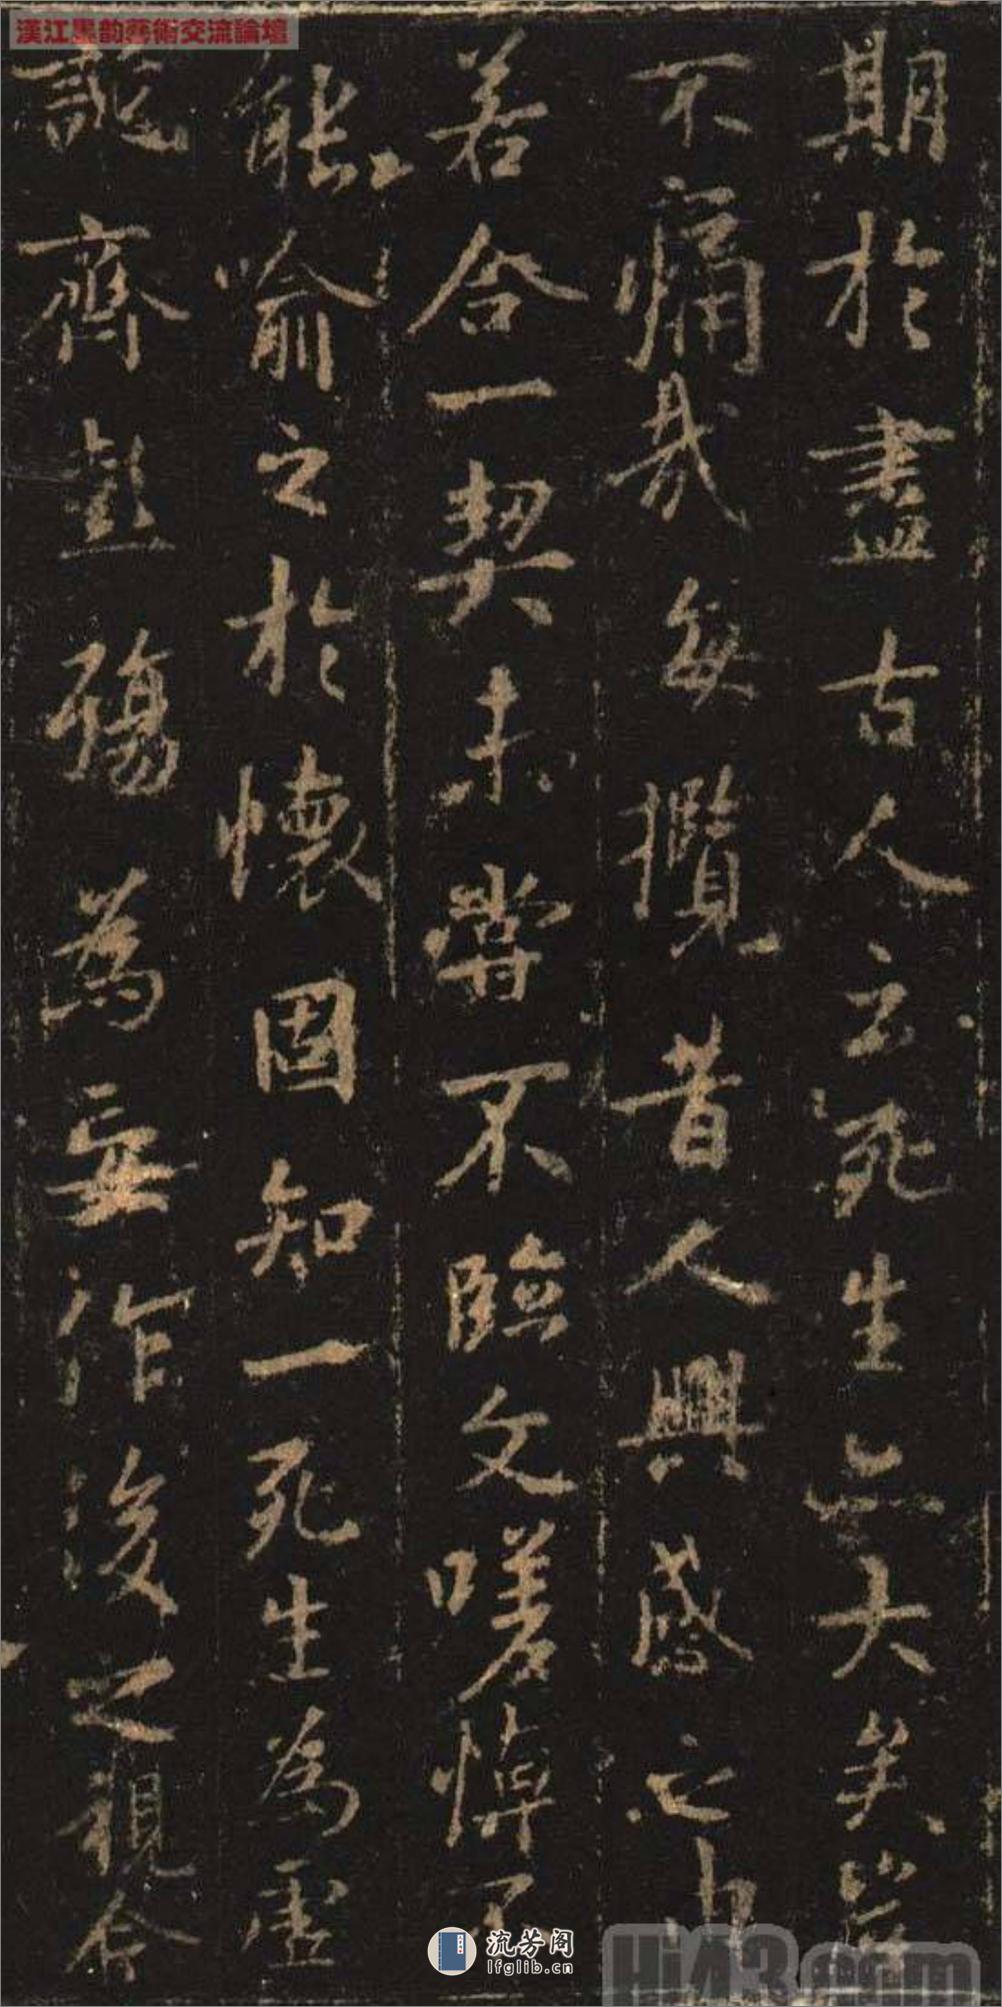 漢江墨韵藝術交流論壇
期於盡古人云死生亦大矣豈
不痛哉每攬昔人興感之由
若合一契未嘗不臨文嗟悼不
能喻之於懷固知一死生為虛
誕齊彭殤為妄作後之視今
流芳阁
lfglib.cn
Hi43.com